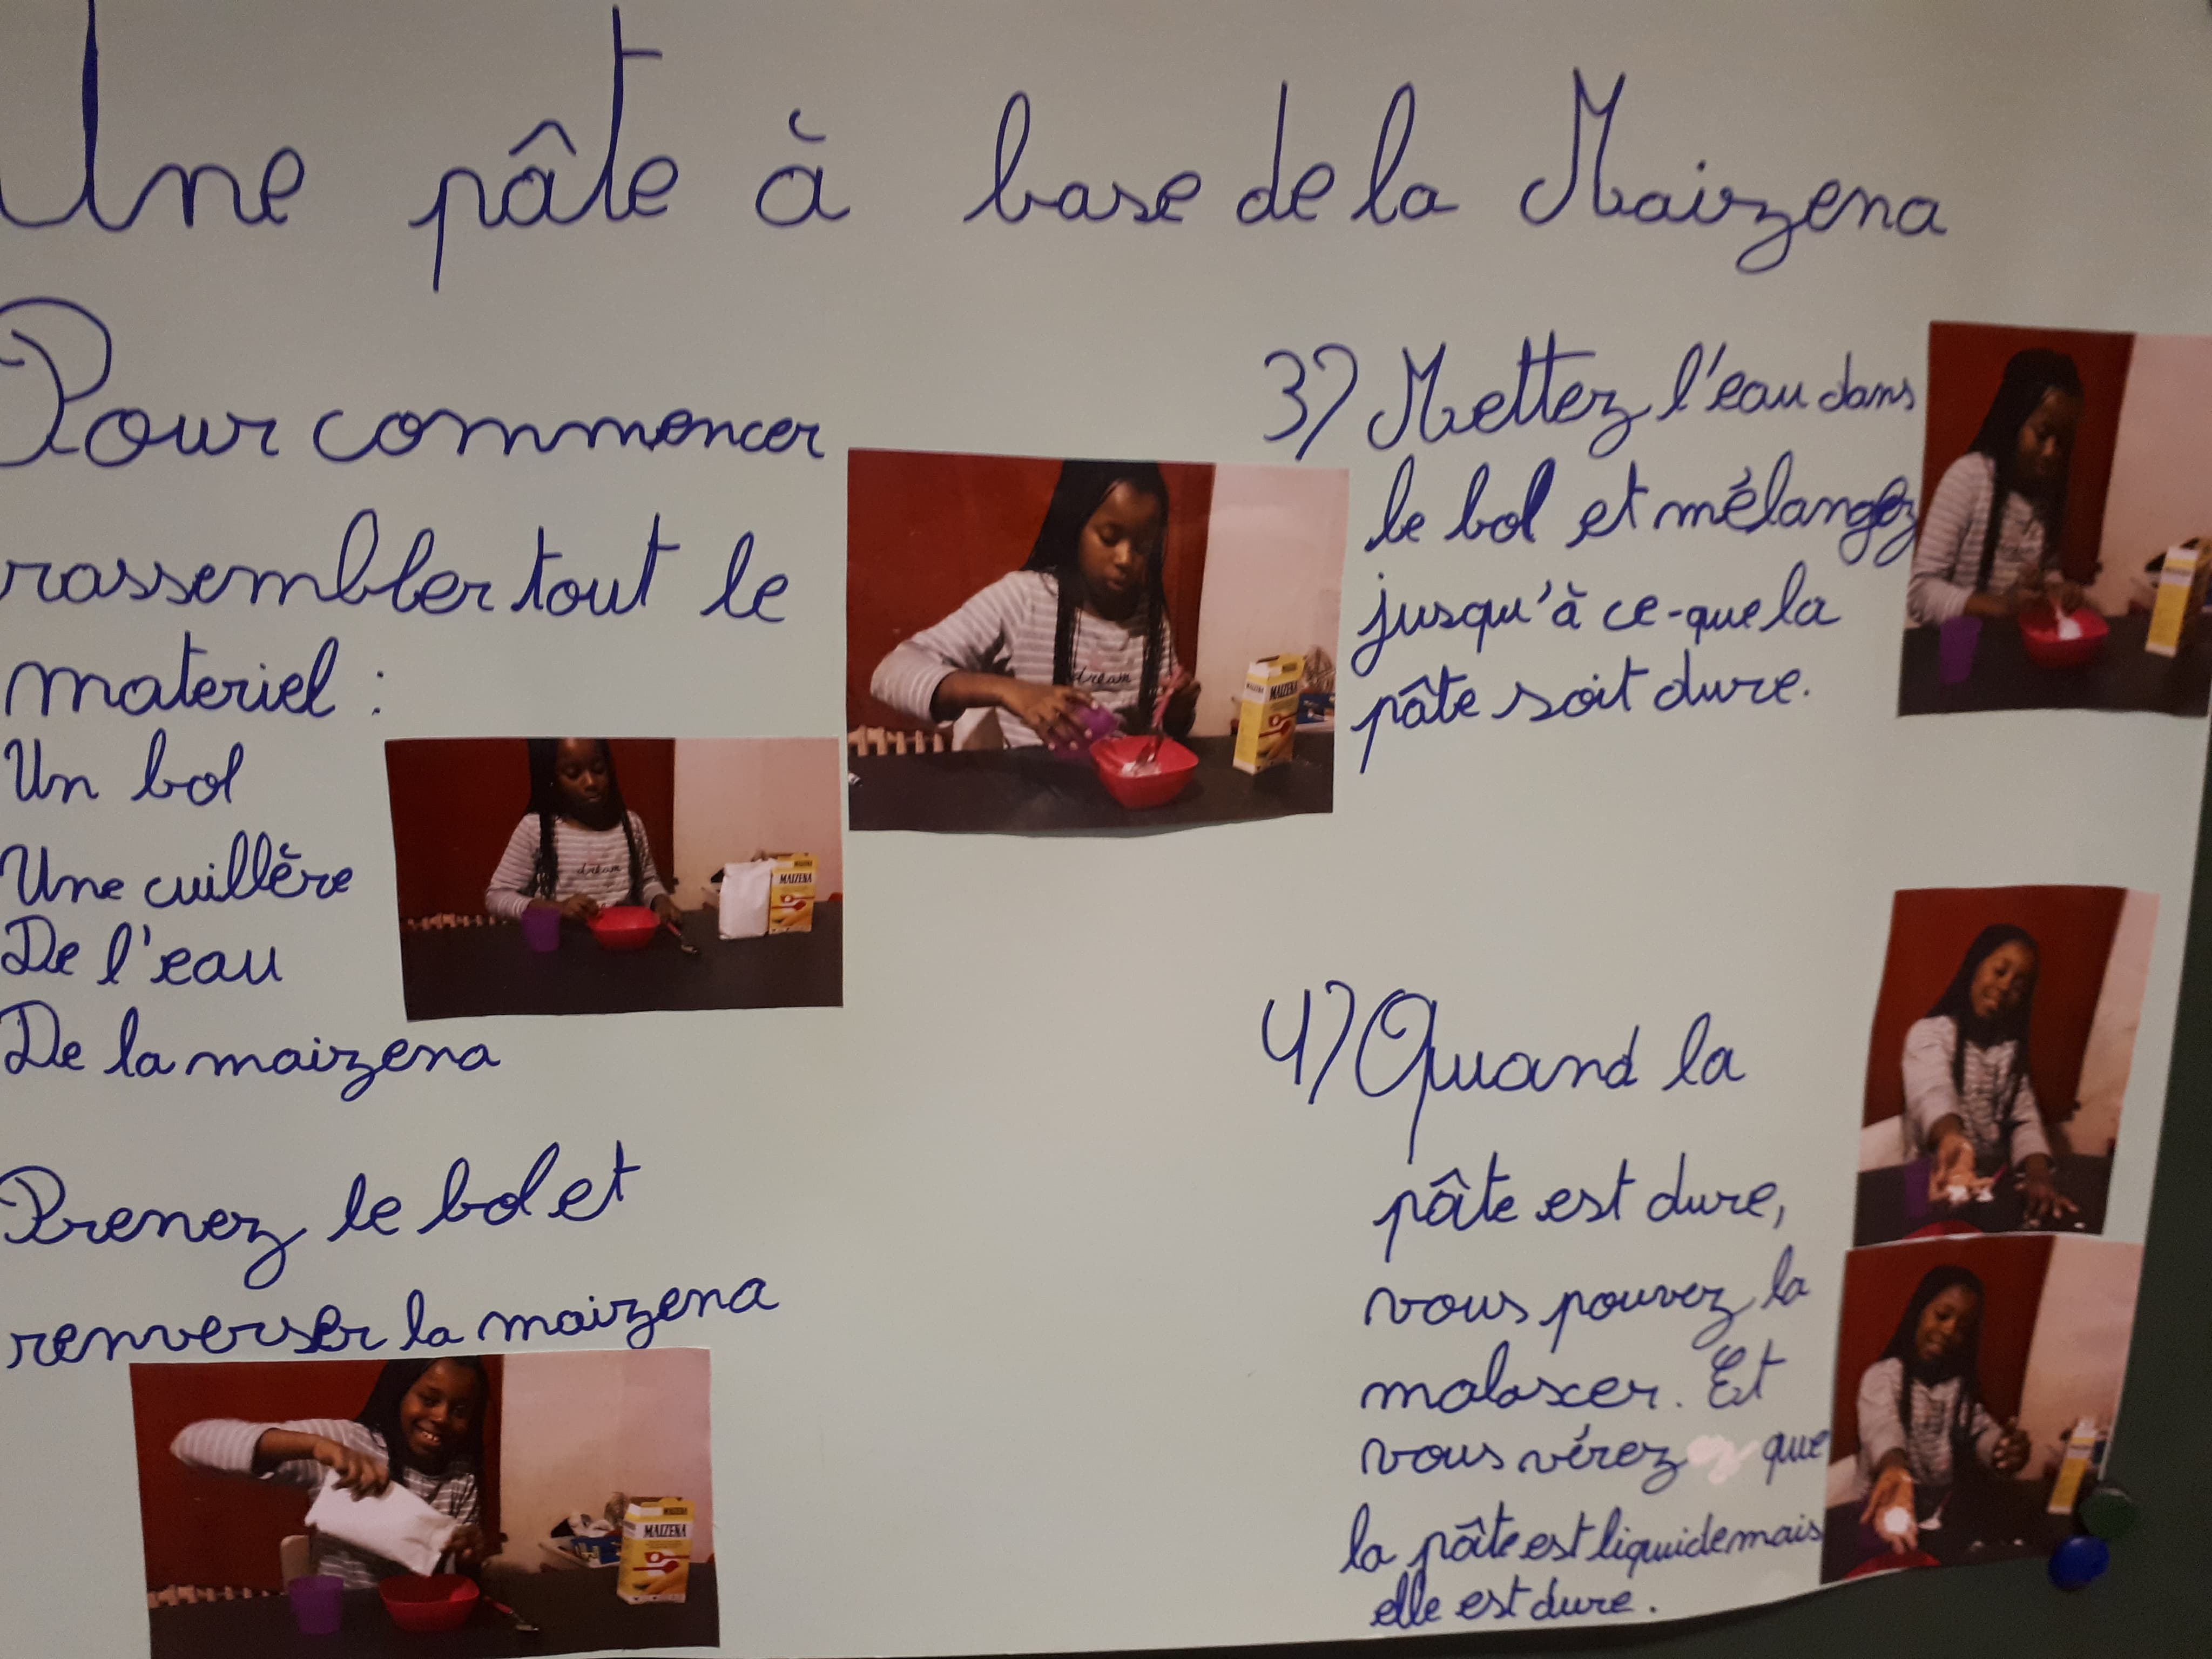 Une pâte à base de la Maizena
Pour commencer
rassembler tout le
materiel :
Un bol
Une cuillère
De l'eau
De la maizena
Prenez le bol et
renverser la maizena
3) Mettez l'eau dans
le bol et mélangez
jusqu'à ce-que la
pâte soit dure.
4) Quand la
pâte est dure,
vous pouvez la
malaxer. Et
vous vérez que
la pâte est liquide mais
elle est dure.
dream
MAIZENA
dream
MAIZENA
MAIZENA